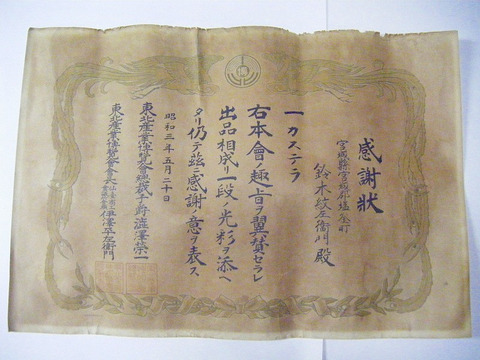 感謝狀
宮城縣宮城郡塩釜町
鈴木紋左衞門殿
一カステラ
右本會ノ趣旨ヲ翼賛セラレ
出品相成リ一段ノ光彩ヲ添ヘ
タリ仍テ茲ニ感謝ノ意ヲ表ス
昭和三年五月二十日
東北産業博覽會總裁子爵澁澤榮一
東北産業博覽會會長伊澤平左衞門